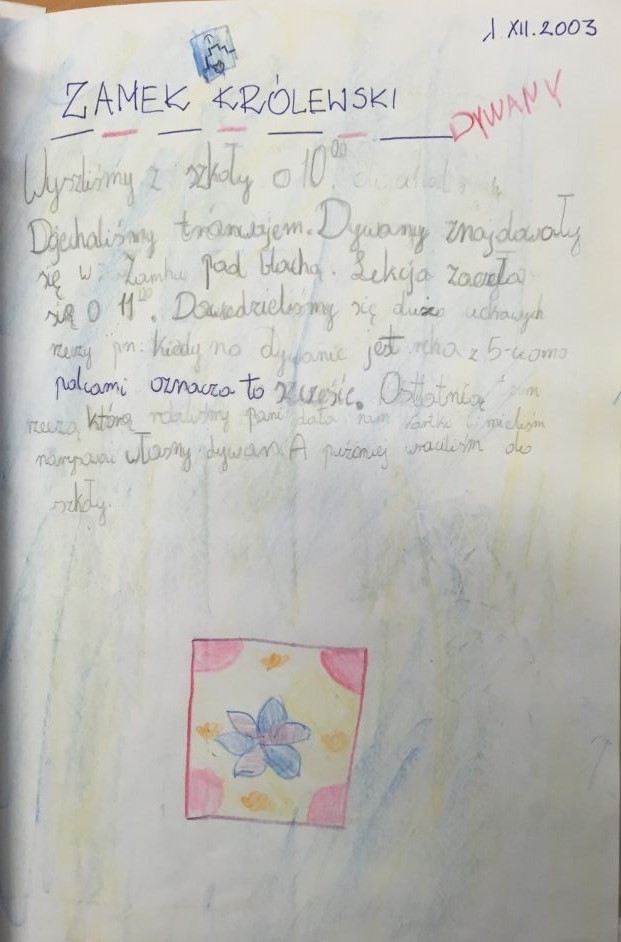 1.XII.2003
ZAMEK KRÓLEWSKI
DYWANY
Wyszliśmy z szkoły o 10⁰⁰
Dojechaliśmy tramwajem. Dywany znajdowały
się w Zamku pod blachą. Lekcja zaczęła
się o 11⁰⁰. Dowiedzieliśmy się dużo ciekawych
rzeczy pn: kiedy na dywanie jest ręka z 5-cioma
palcami oznacza to szczęście. Ostatnią
rzeczą którą robiliśmy pani dała nam kartki i mieliśm
narysować własny dywan. A puźniej wrucilism do
szkoły.